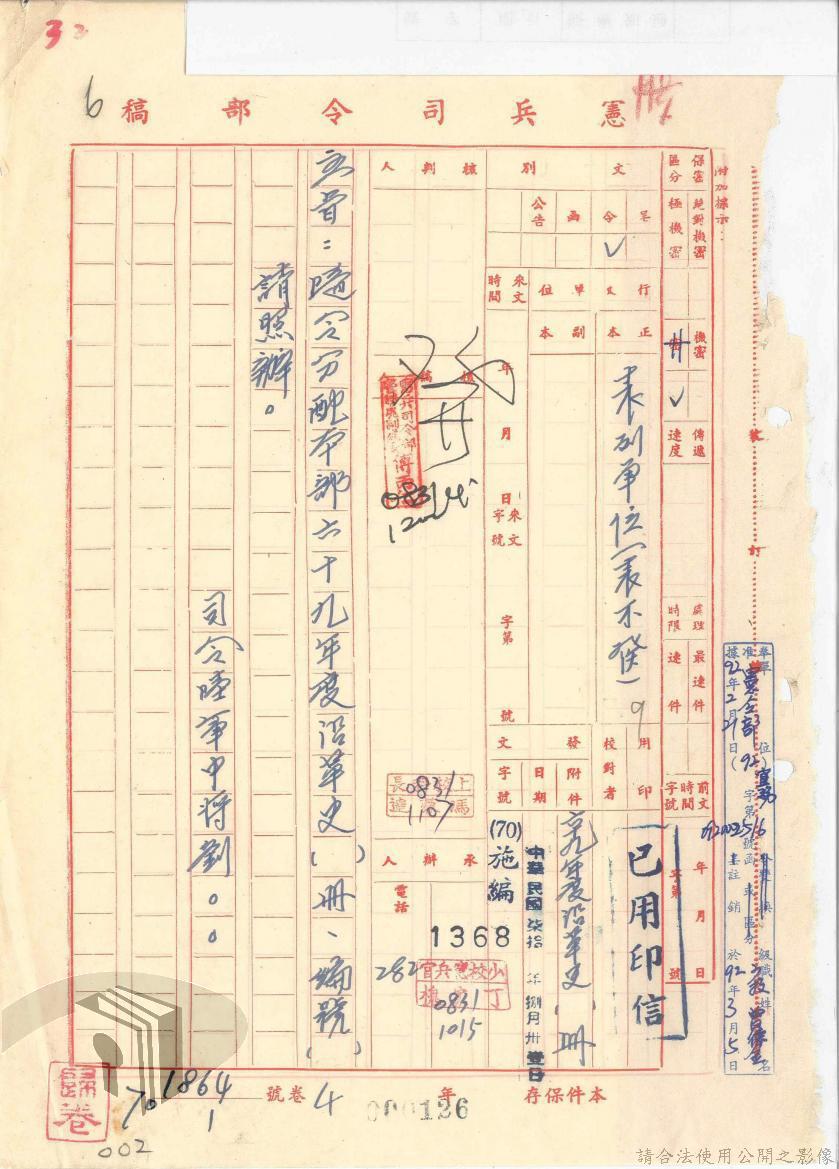 32
6
憲兵司令部稿
附加標示：
保密區分
絕對機密
極機密
機密
密
✓
傳遞速度
處理時限
最速件
速件
前文時間字號
年月日
字第號
文別
呈
令
✓
函
公告
行文單位
正本
副本
表列單位(表不發)
來文時間
年月日
來文字號
字第號
用印
校對者
已用印信
發文
附件
六九年度沿革史( )冊
日期
中華民國柒拾年捌月卅壹日
字號
(70)施編
1368
核判人
核稿
0831
1200
0831
1107
承辦人
電話
282
少校憲兵官
0831
1015
主旨：隨令分配本部六十九年度沿革史( )冊、編號( )
請照辦。
司令陸軍中將劉○○
裝訂
92年2月21日
0920002516
註銷於92年3月5日
歸卷
1864
70 1
002
本件保存 年
卷號 4
000126
請合法使用公開之影像